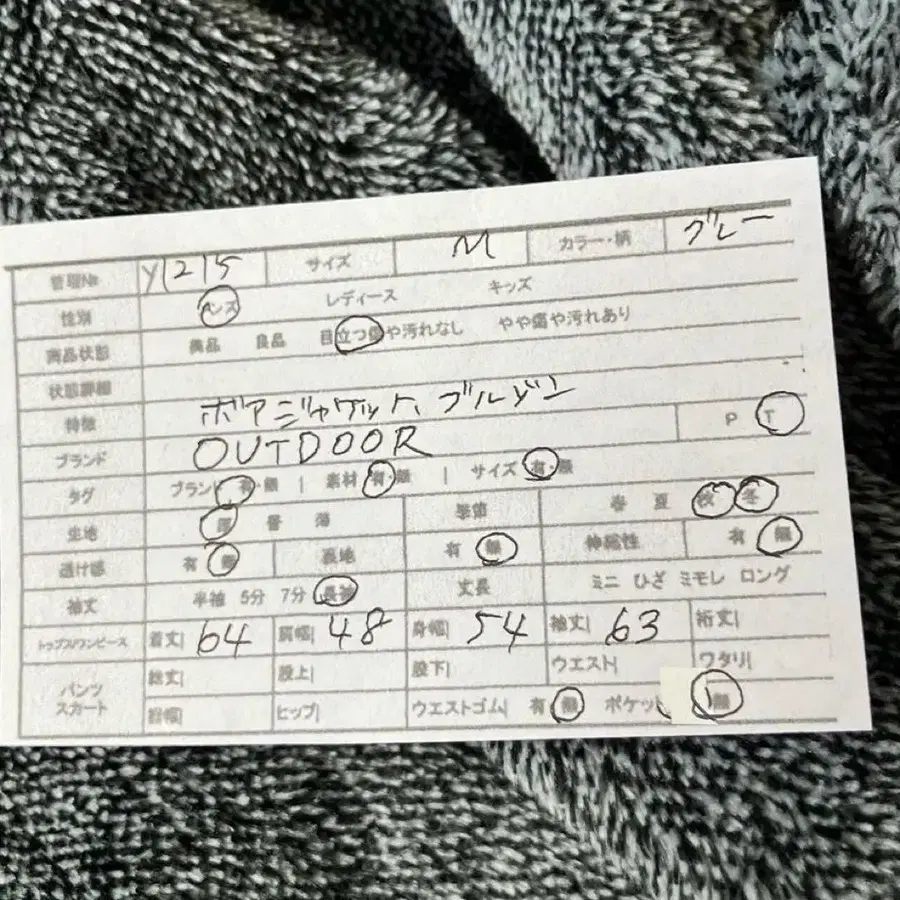 管理№ y1215 サイズ M カラー・柄 グレー
性別 メンズ レディース キッズ
商品状態 美品 良品 目立つ傷や汚れなし やや傷や汚れあり
状態詳細
特徴 ボアジャケット、ブルゾン
ブランド OUTDOOR P T
タグ ブランド 有・無 | 素材 有・無 | サイズ 有・無
生地 厚 普 薄 季節 春 夏 秋 冬
透け感 有 無 裏地 有 無 伸縮性 有 無
袖丈 半袖 5分 7分 長袖 丈長 ミニ ひざ ミモレ ロング
トップス/ワンピース 着丈| 64 肩幅| 48 身幅| 54 袖丈| 63 裄丈|
パンツ スカート 総丈| 股上| 股下| ウエスト| ワタリ|
裾幅| ヒップ| ウエストゴム| 有 無 ポケット 無